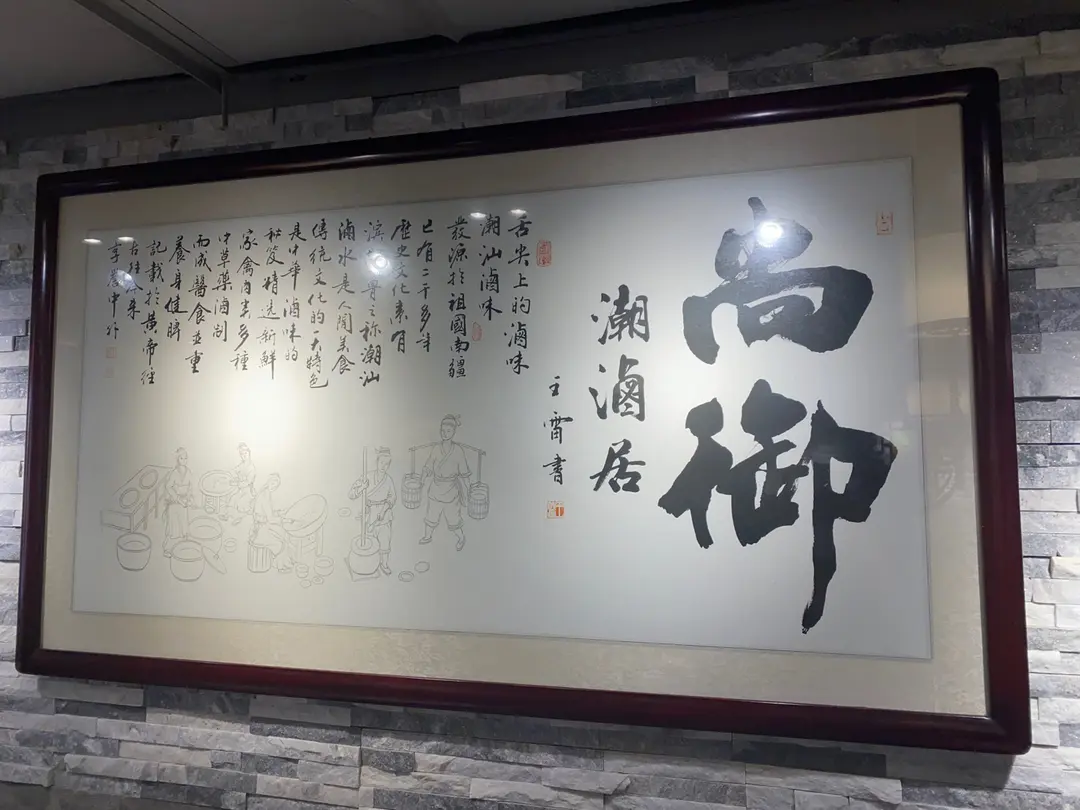 尚御
潮滷居
王雷書
舌尖上的滷味
潮汕滷味
發源於祖國南疆
已有二千多年
歷史文化素有
之称潮汕
滷水是人間美食
傳統文化的一大特色
是中华滷味的
秘笈精选新鮮
家禽肉类多種
中草藥滷制
而成醫食並重
養身健脾
記载於黄帝经
古往今来
享誉中外